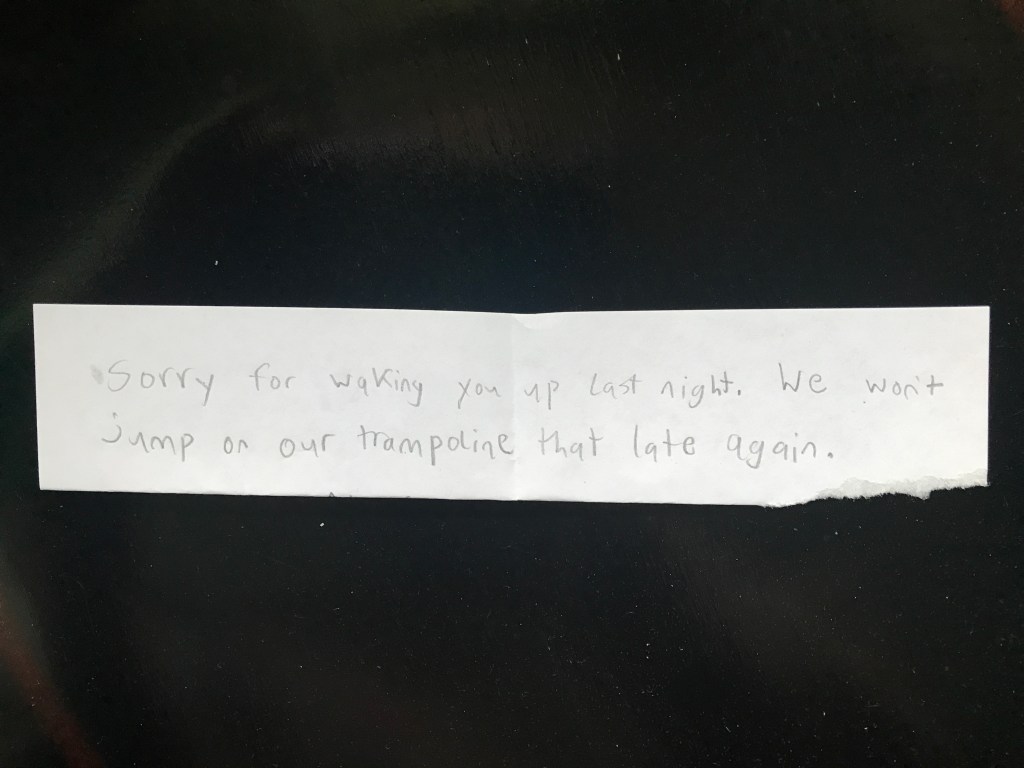 Sorry for waking you up last night. We won't
jump on our trampoline that late again.